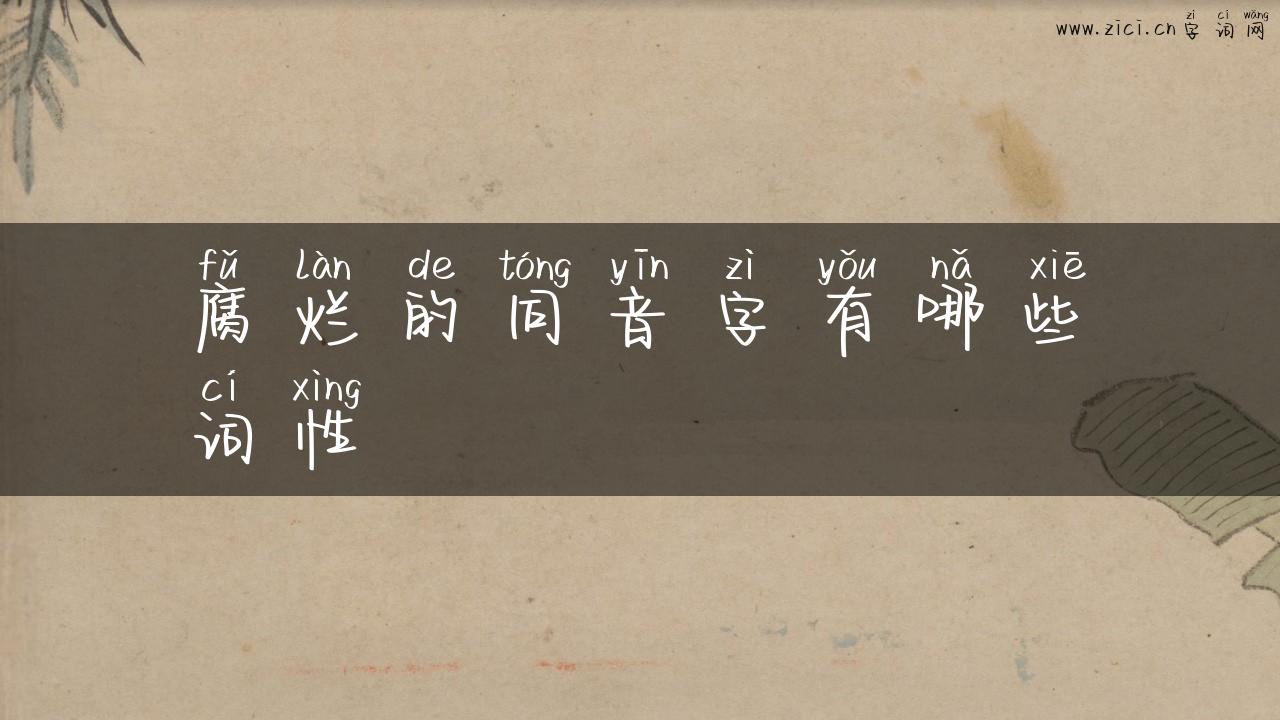 zì cí wǎng
www.zici.cn 字词网
fǔ làn de tóng yīn zì yǒu nǎ xiē
腐烂的同音字有哪些
cí xìng
词性